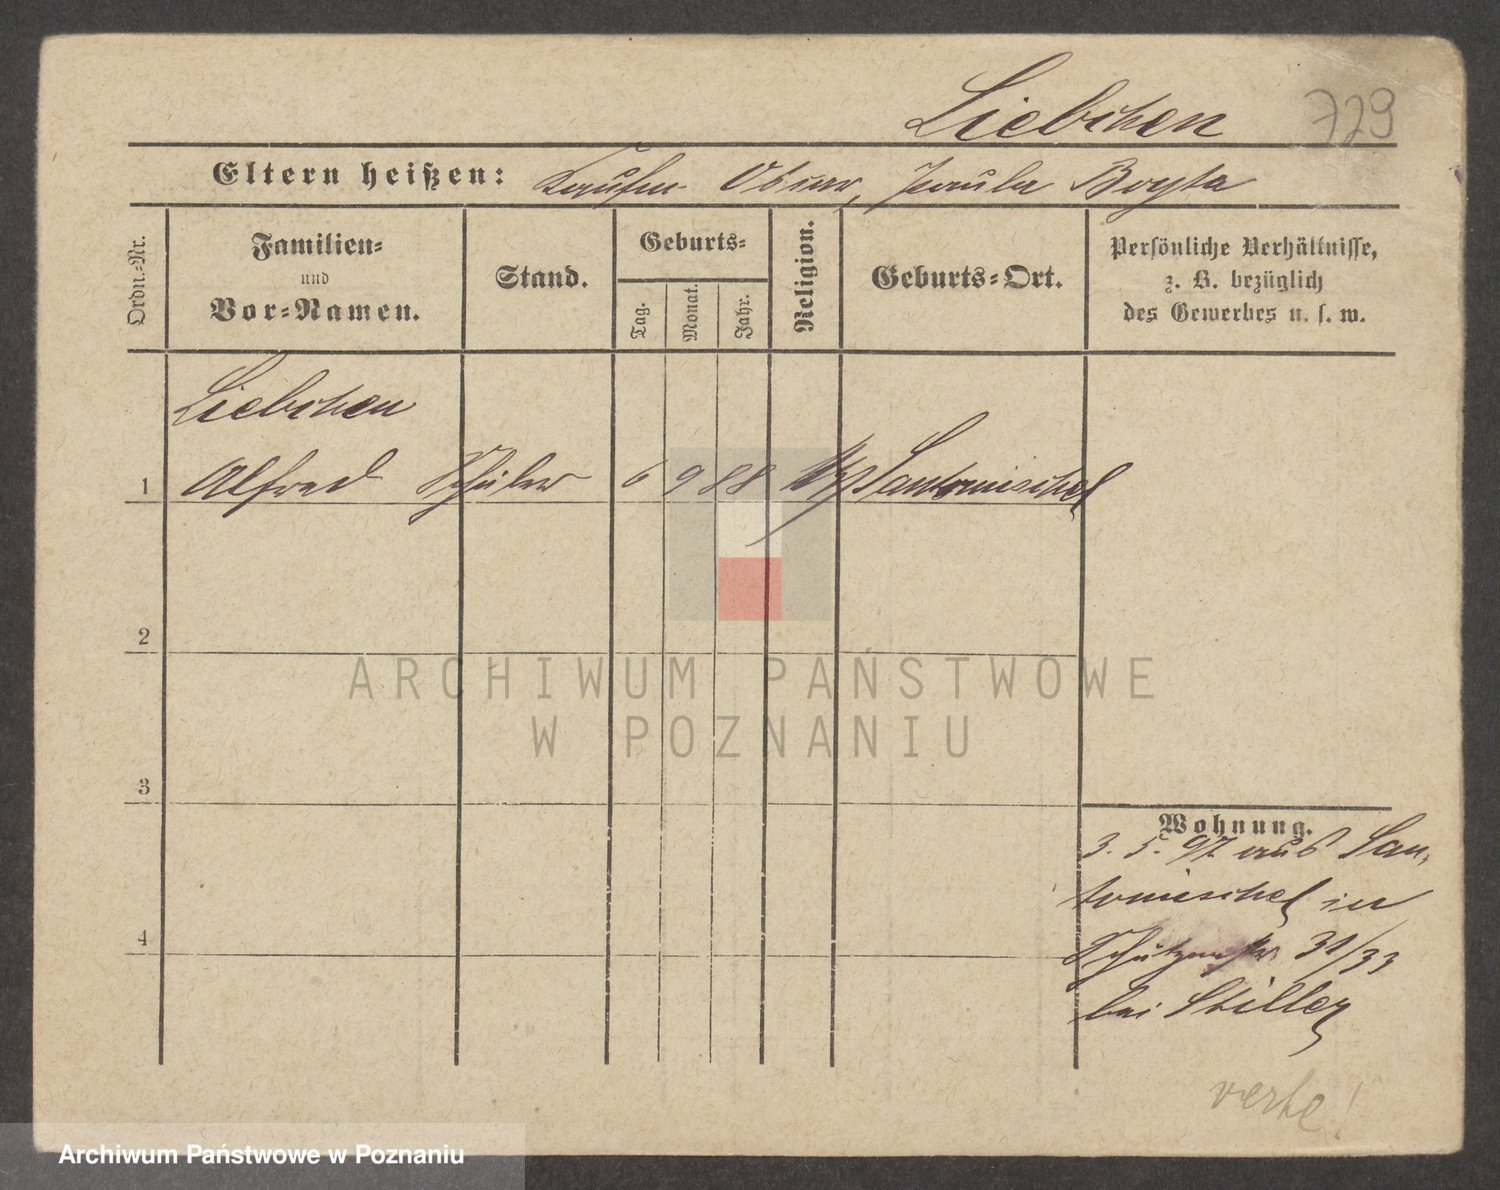 Liebchen 729
Eltern heißen: Kaufm. Oscar, Paula Boyta
Ordn.-Nr.
Familien-
und
Vor-Namen.
Stand.
Geburts-
Tag.
Monat.
Jahr.
Religion.
Geburts-Ort.
Persönliche Verhältnisse,
z. B. bezüglich
des Gewerbes u. s. w.
Liebchen
1 Alfred Schüler 6 9 88 Santomischel
2
3
4
Wohnung.
3. 5. 97 aus San-
tomischel in
Schützenstr 31/33
bei Stiller
verte!
ARCHIWUM PAŃSTWOWE
W POZNANIU
Archiwum Państwowe w Poznaniu